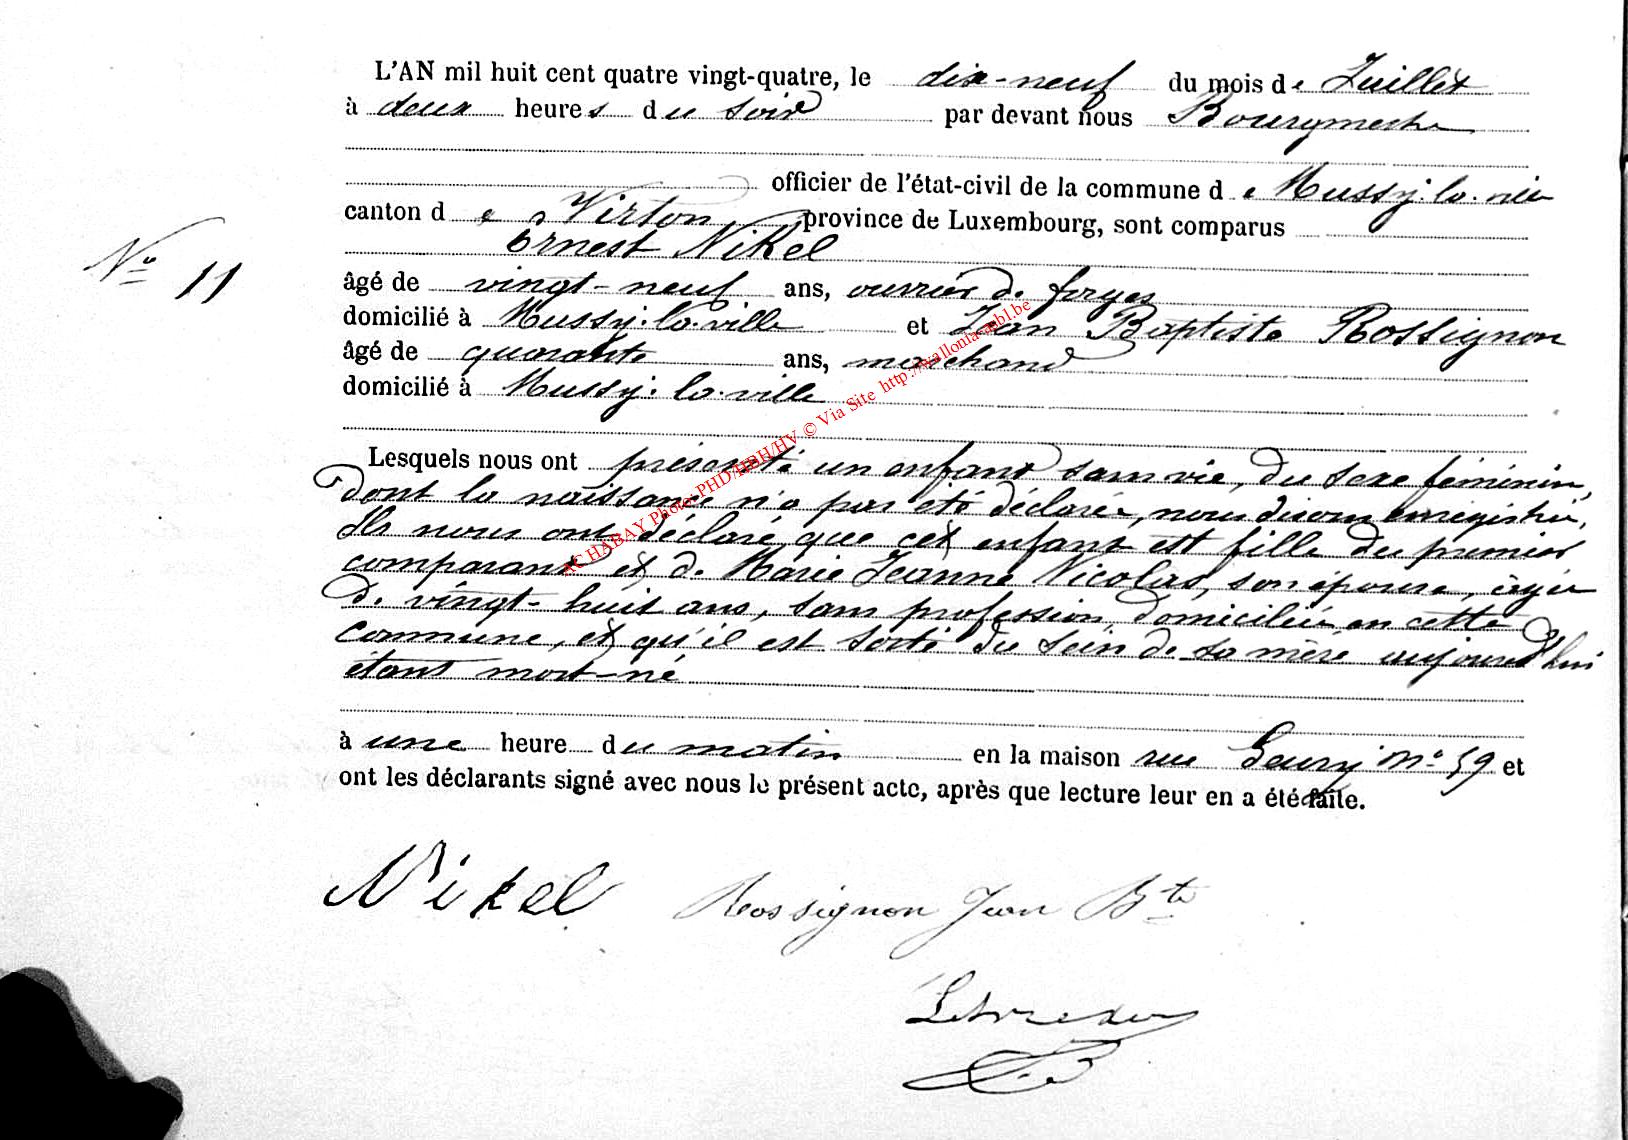 L'AN mil huit cent quatre vingt-quatre, le dix-neuf du mois de Juillet
à deux heures du soir par devant nous Bourgmestre
officier de l'état-civil de la commune de Mussy-la-ville
canton de Virton province de Luxembourg, sont comparus
Ernest Nikel
N° 11
âgé de vingt-neuf ans, ouvrier de forges
domicilié à Mussy-la-ville et Jean Baptiste Rossignon
âgé de quarante ans, marchand
domicilié à Mussy-la-ville
Lesquels nous ont présenté un enfant sans vie, du sexe féminin,
dont la naissance n'a pas été déclarée, nous disons enregistrée.
Ils nous ont déclaré que cet enfant est fille du premier
comparant et de Marie Jeanne Nicolas, son épouse, âgée
de vingt-huit ans, sans profession, domiciliée en cette
commune, et qu'il est sorti du sein de sa mère aujourd'hui
étant mort-né
à une heure du matin en la maison rue n° 59 et
ont les déclarants signé avec nous le présent acte, après que lecture leur en a été faite.
Nikel Rossignon Jean Bte
ACHABAY Photo-PHD/HBH/HV © Via Site http://wallonia-asbl.be